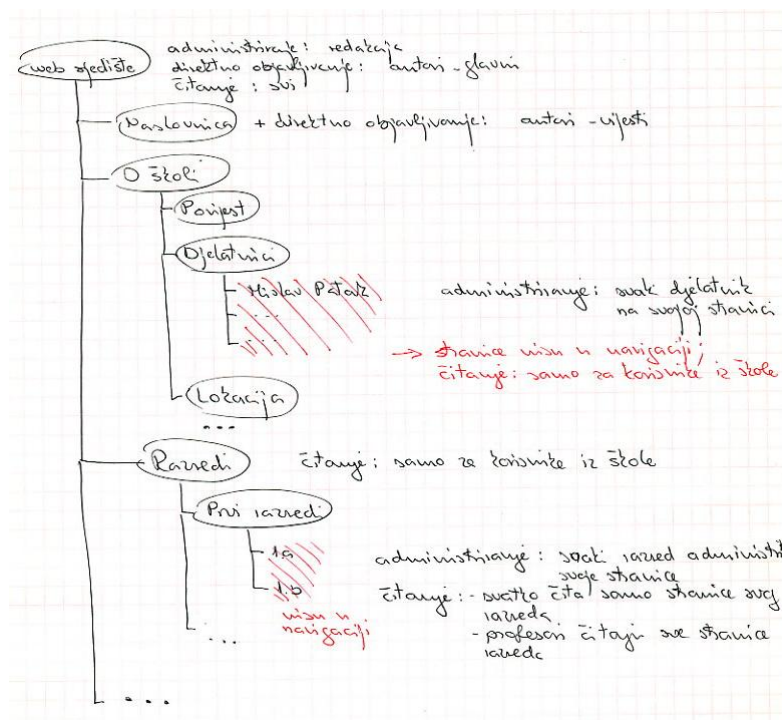 web sjedište
administriranje: redakcija
direktno objavljivanje: autori-glavni
čitanje: svi
Naslovnica + direktno objavljivanje: autori-vijesti
O školi
Povijest
Djelatnici
Mislav Pitak administriranje: svak djelatnik
... na svojoj stranici
...
→ stranice nisu u navigaciji;
čitanje: samo za korisnike iz škole
Lokacija
...
Razredi čitanje: samo za korisnike iz škole
Prvi razredi
1.a administriranje: svaki razred administri
svoje stranice
1.b čitanje: - svatko čita samo stranice svog
razreda
nisu u
navigaciji
- profesori čitaju sve stranice
razreda
...
...